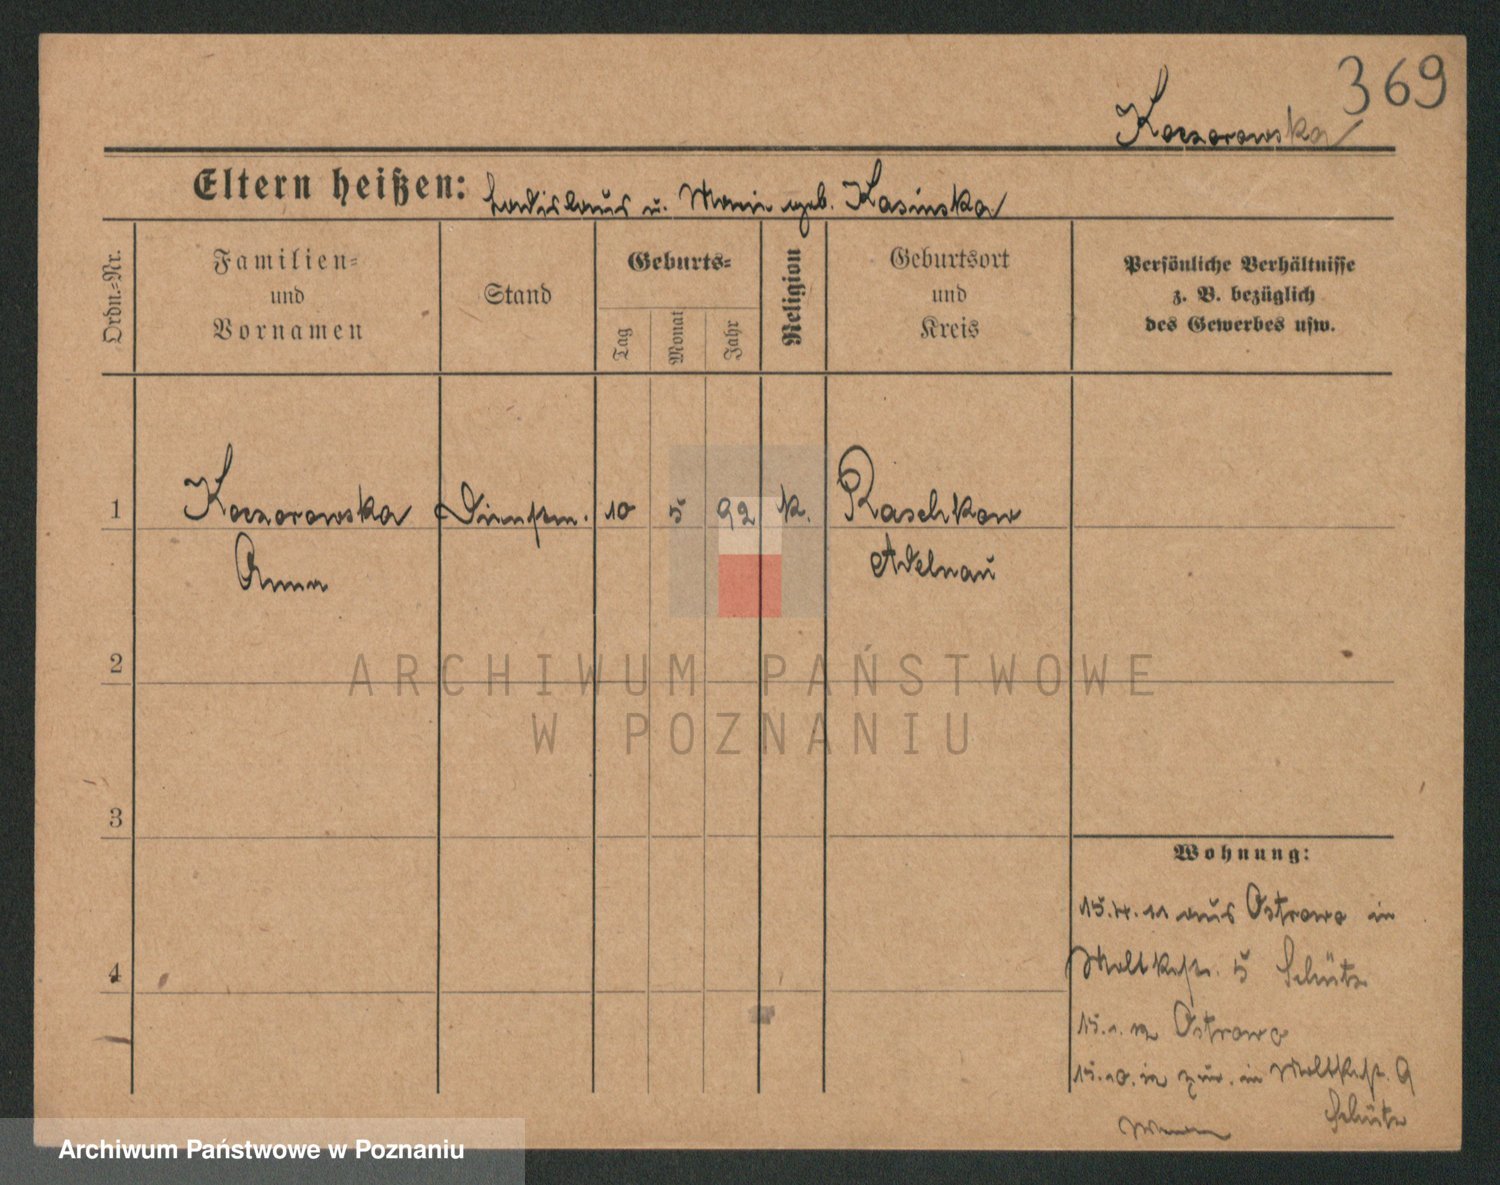 369
Koczorowska
Eltern heißen: Ladislaus u. Marie geb. Kasinska
Ordn.-Nr.
Familien-
und
Vornamen
Stand
Geburts-
Tag
Monat
Jahr
Religion
Geburtsort
und
Kreis
Persönliche Verhältnisse
z. B. bezüglich
des Gewerbes usw.
1 Koczorowska Dienstm. 10 5 92 k. Raschkow
Anna Adelnau
2
3
4
Wohnung:
15.4.11 aus Ostrowo in
Moltkestr. 5 Schütz
15.1.12 Ostrowo
15.10.12 zur. in Moltkestr. 9
Schütz
ARCHIWUM PAŃSTWOWE
W POZNANIU
Archiwum Państwowe w Poznaniu